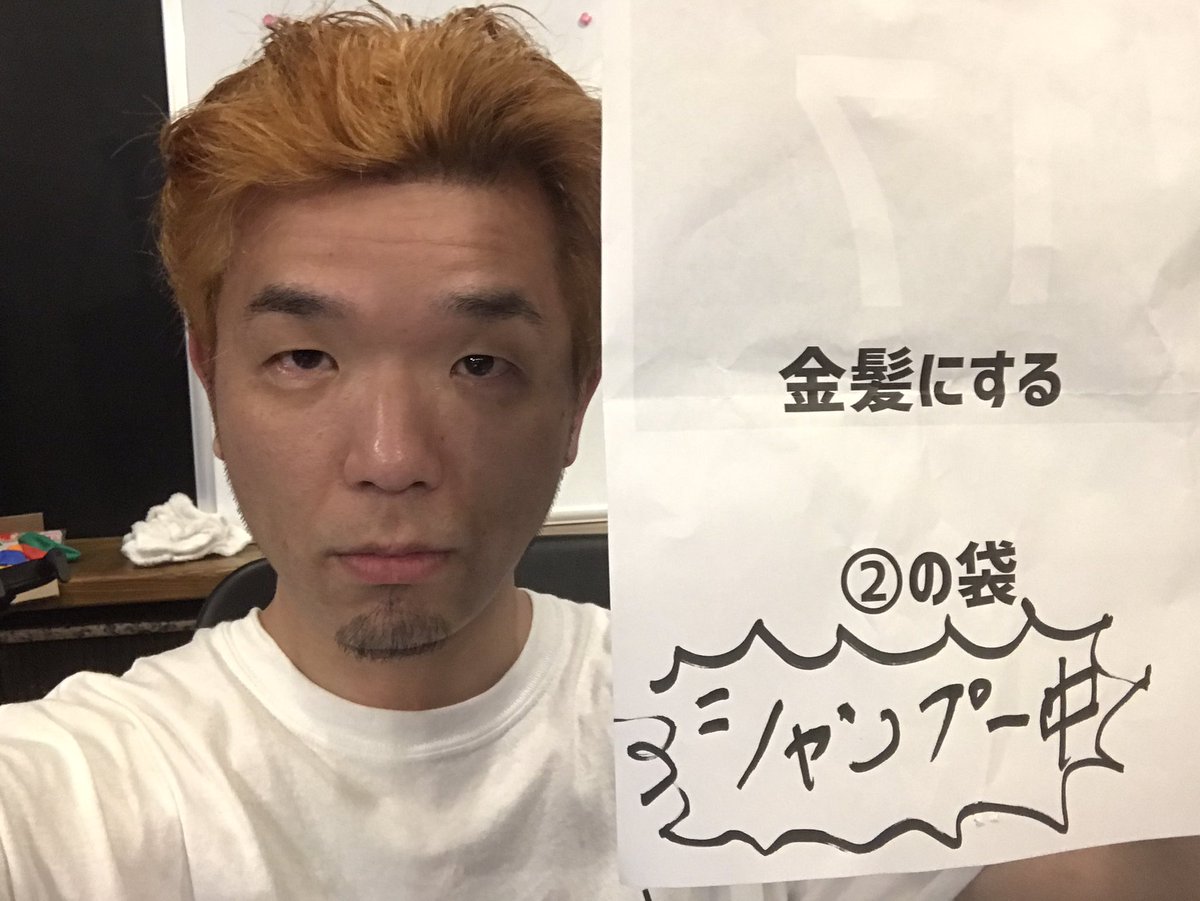 金髪にする
②の袋
シャンプー中